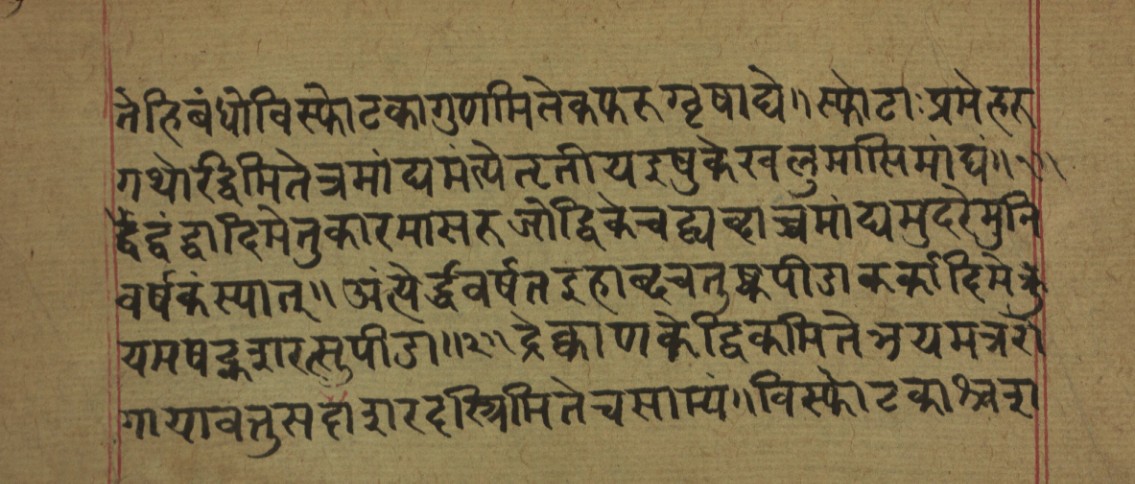 तेहिबंधोविस्फोटकागुणमितेकफरुग्वृषाद्ये॥स्फोटाःप्रमेहरु
गथोरद्विमितेत्रमांद्यमंत्येतृतीयइषुकेखलुमासिमांद्यं॥२०॥
र्द्वेद्वंद्वादिमेतुकारमासरुजोद्विकेचद्व्यब्दाच्चमांद्यमुदरेमुनि
वर्षकंस्यात्॥अंत्येर्द्धवर्षतइहाब्दचतुष्कपीडाकर्कादिमे
यमषट्कशरत्सुपीडा॥२१॥द्रेक्काणकेद्विकमितेभयमत्ररो
गायावत्तुसप्तशरदस्त्रिमितेचसाम्यं॥विस्फोटकाश्वशा